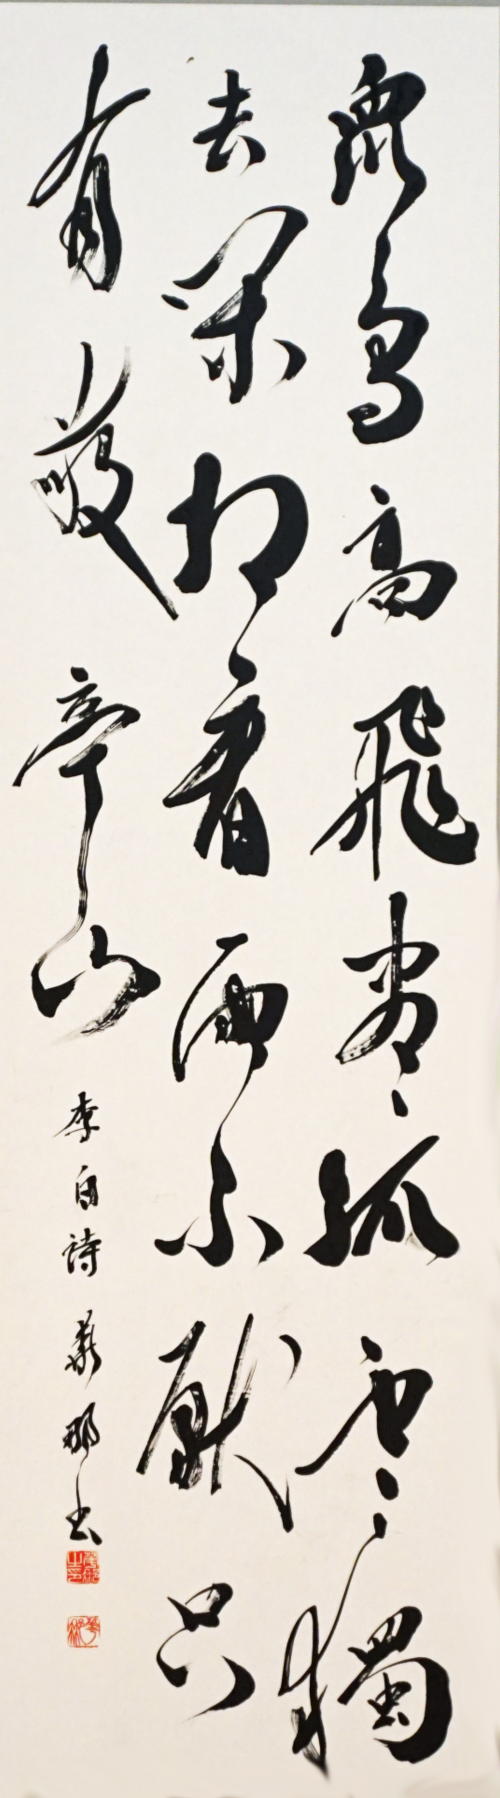 眾鳥高飛盡孤雲獨
去閑相看兩不厭只
有敬亭山 李白詩 那書